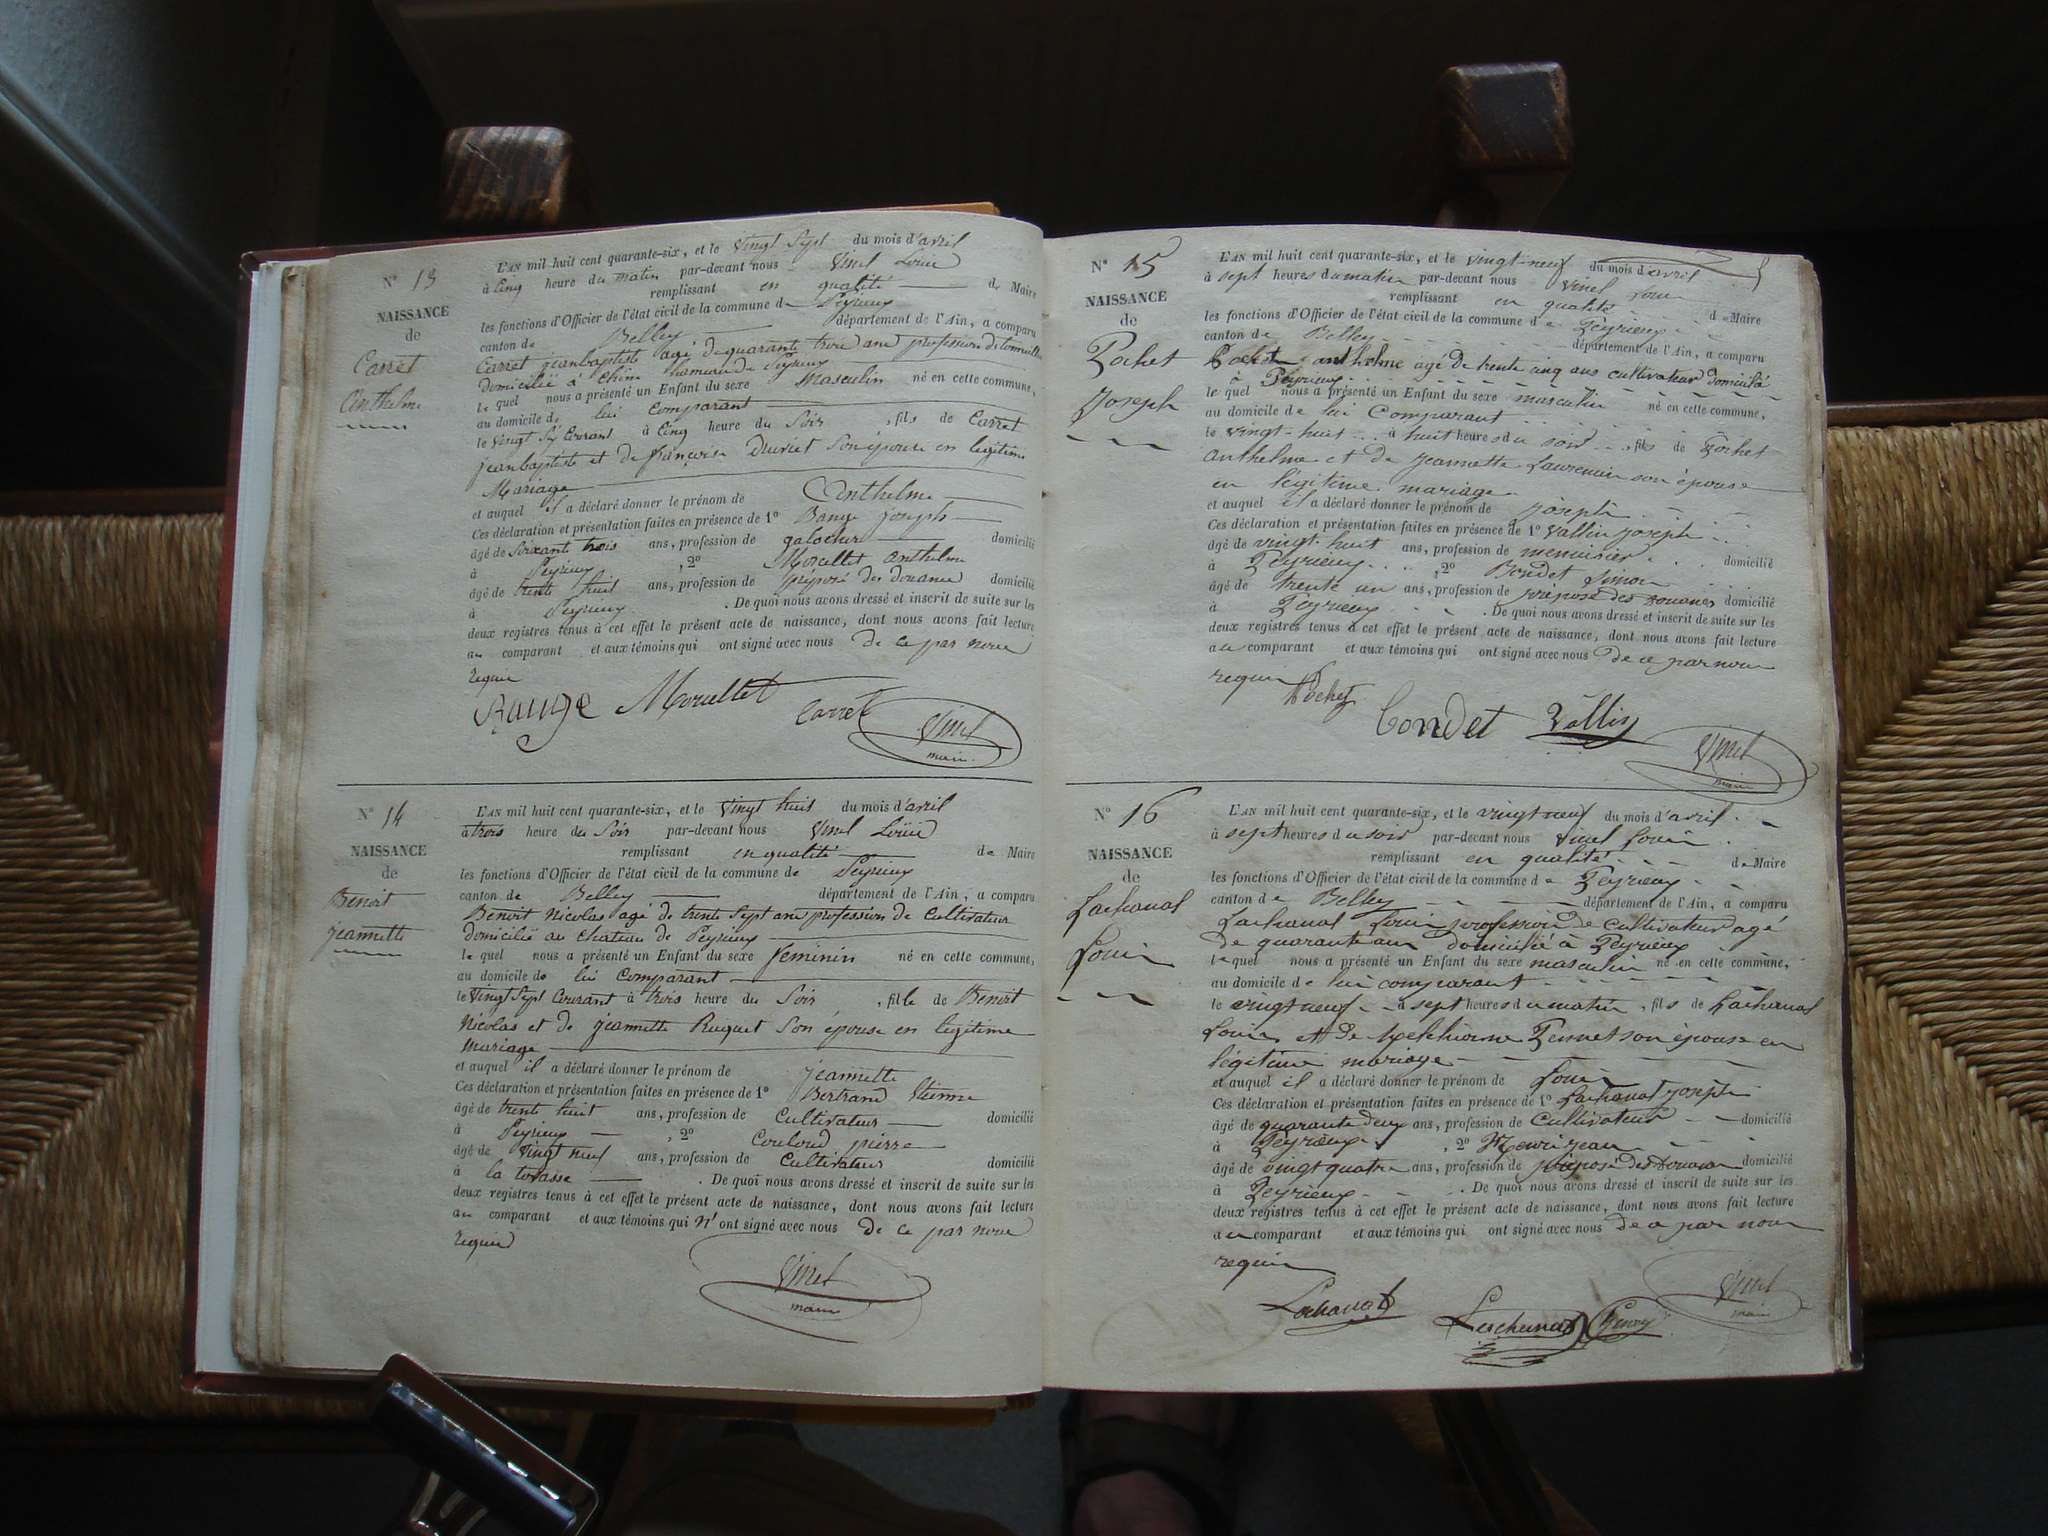 N° 13
NAISSANCE
de
Carret
Anthelme
L'AN mil huit cent quarante-six, et le vingt sept du mois d'avril
à cinq heure du matin par-devant nous Vinel Louis
remplissant en qualité de Maire
les fonctions d'Officier de l'état civil de la commune de Peyrieux
canton de Belley département de l'Ain, a comparu
Carret jeanbaptiste agé de quarante trois ans profession de
domicilié à hameau de Peyrieux
le quel nous a présenté un Enfant du sexe Masculin né en cette commune,
au domicile de lui Comparant
le vingt six Courant à cinq heure du Soir , fils de Carret
jeanbaptiste et de françoise son épouse en légitime
Mariage
et auquel il a déclaré donner le prénom de Anthelme
Ces déclaration et présentation faites en présence de 1° joseph
âgé de soixante trois ans, profession de galocheur domicilié
à Peyrieux , 2° Morellet Anthelme
âgé de trente huit ans, profession de préposé des douanes domicilié
à Peyrieux . De quoi nous avons dressé et inscrit de suite sur les
deux registres tenus à cet effet le présent acte de naissance, dont nous avons fait lecture
au comparant et aux témoins qui ont signé avec nous de ce par nous
requis
Morellet Carret Vinel
maire
N° 14
NAISSANCE
de
Benoit
jeannette
L'AN mil huit cent quarante-six, et le vingt huit du mois d'avril
à trois heure du Soir par-devant nous Vinel Louis
remplissant en qualité de Maire
les fonctions d'Officier de l'état civil de la commune de Peyrieux
canton de Belley département de l'Ain, a comparu
Benoit Nicolas agé de trente sept ans profession de Cultivateur
domicilié au chateau de Peyrieux
le quel nous a présenté un Enfant du sexe feminin né en cette commune,
au domicile de lui Comparant
le vingt sept Courant à trois heure du Soir , fille de Benoit
Nicolas et de jeannette Ruquet Son épouse en legitime
mariage
et auquel il a déclaré donner le prénom de jeannette
Ces déclaration et présentation faites en présence de 1° Bertrand Etienne
âgé de trente huit ans, profession de Cultivateur domicilié
à Peyrieux , 2° Couloud pierre
âgé de vingt neuf ans, profession de Cultivateur domicilié
à la . De quoi nous avons dressé et inscrit de suite sur les
deux registres tenus à cet effet le présent acte de naissance, dont nous avons fait lecture
au comparant et aux témoins qui n'ont signé avec nous de ce par nous
requis
Vinel
maire
N° 15
NAISSANCE
de
Pochet
Joseph
L'AN mil huit cent quarante-six, et le vingt-neuf du mois d'avril
à sept heures du matin par-devant nous Vinel Louis
remplissant en qualité de Maire
les fonctions d'Officier de l'état civil de la commune de Peyrieux
canton de Belley département de l'Ain, a comparu
Pochet anthelme agé de trente cinq ans cultivateur domicilié
à Peyrieux
le quel nous a présenté un Enfant du sexe masculin né en cette commune,
au domicile de lui Comparant
le vingt-huit à huit heures du soir , fils de Pochet
Anthelme et de jeannette son épouse
en légitime mariage
et auquel il a déclaré donner le prénom de joseph
Ces déclaration et présentation faites en présence de 1° Vallin joseph
âgé de vingt-huit ans, profession de menuisier domicilié
à Peyrieux , 2° Bondet Simon
âgé de trente un ans, profession de préposé des Douanes domicilié
à Peyrieux . De quoi nous avons dressé et inscrit de suite sur les
deux registres tenus à cet effet le présent acte de naissance, dont nous avons fait lecture
au comparant et aux témoins qui ont signé avec nous de ce par nous
requis
Pochet Bondet Vallin Vinel
maire
N° 16
NAISSANCE
de
Lachanal
Louis
L'AN mil huit cent quarante-six, et le vingt neuf du mois d'avril
à sept heures du soir par-devant nous Vinel Louis
remplissant en qualité de Maire
les fonctions d'Officier de l'état civil de la commune de Peyrieux
canton de Belley département de l'Ain, a comparu
Lachanal Louis profession de cultivateur agé
de quarante ans domicilié à Peyrieux
le quel nous a présenté un Enfant du sexe masculin né en cette commune,
au domicile de lui comparant
le vingt neuf à sept heures du matin , fils de Lachanal
Louis et de son épouse en
légitime mariage
et auquel il a déclaré donner le prénom de Louis
Ces déclaration et présentation faites en présence de 1° Lachanal joseph
âgé de quarante deux ans, profession de Cultivateur domicilié
à Peyrieux , 2° Henri jean
âgé de vingt quatre ans, profession de préposé des Douanes domicilié
à Peyrieux . De quoi nous avons dressé et inscrit de suite sur les
deux registres tenus à cet effet le présent acte de naissance, dont nous avons fait lecture
au comparant et aux témoins qui ont signé avec nous de ce par nous
requis
Lachanal Lachanal Henry Vinel
maire